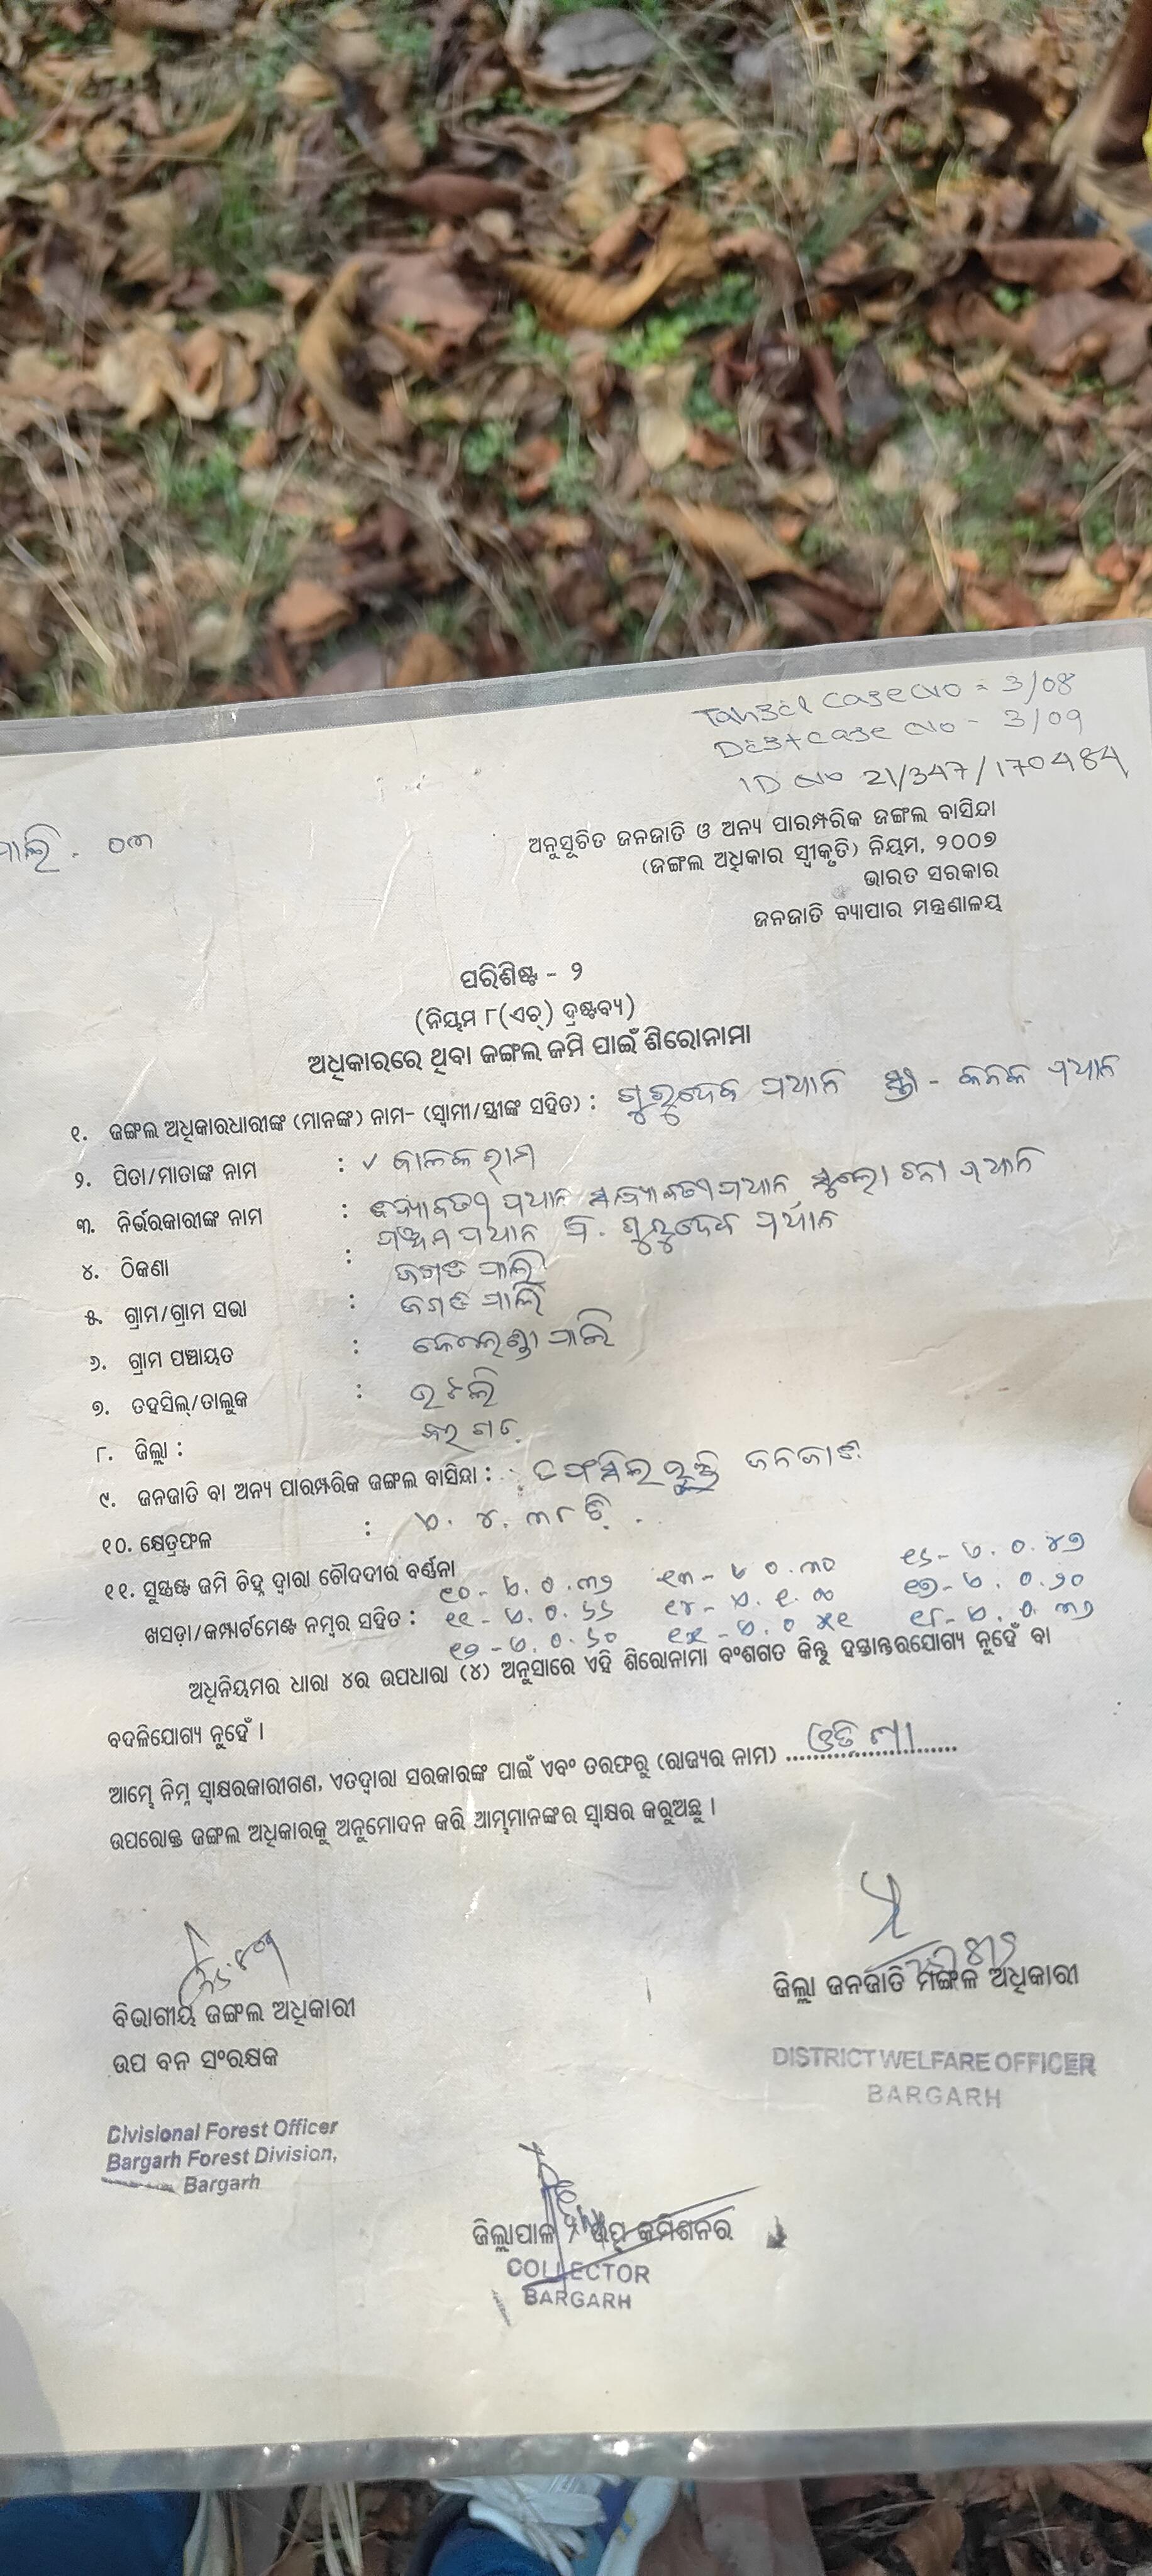 Tahsil Case No = 3/08
Dist case No - 3/09
ID No 21/347/170484
ପାଲି . ୦୩
ଅନୁସୂଚିତ ଜନଜାତି ଓ ଅନ୍ୟ ପାରମ୍ପରିକ ଜଙ୍ଗଲ ବାସିନ୍ଦା
(ଜଙ୍ଗଲ ଅଧିକାର ସ୍ୱୀକୃତି) ନିୟମ, ୨୦୦୭
ଭାରତ ସରକାର
ଜନଜାତି ବ୍ୟାପାର ମନ୍ତ୍ରଣାଳୟ
ପରିଶିଷ୍ଟ - ୨
(ନିୟମ ୮(ଏଚ୍) ଦ୍ରଷ୍ଟବ୍ୟ)
ଅଧିକାରରେ ଥିବା ଜଙ୍ଗଲ ଜମି ପାଇଁ ଶିରୋନାମା
୧. ଜଙ୍ଗଲ ଅଧିକାରଧାରୀଙ୍କ (ମାନଙ୍କ) ନାମ- (ସ୍ୱାମୀ/ସ୍ତ୍ରୀଙ୍କ ସହିତ) : ଗୁରୁଦେବ ପ୍ରଧାନ ସ୍ତ୍ରୀ - କନକ ପ୍ରଧାନ
୨. ପିତା/ମାତାଙ୍କ ନାମ : ✓ ବାଳକରାମ
୩. ନିର୍ଭରକାରୀଙ୍କ ନାମ : ପ୍ରଧାନ ପ୍ରଧାନ ସୁଲୋଚନା ପ୍ରଧାନ
ପଞ୍ଚମ ପ୍ରଧାନ ପି. ଗୁରୁଦେବ ପ୍ରଧାନ
୪. ଠିକଣା : ଜଗତପାଲି
୫. ଗ୍ରାମ/ଗ୍ରାମ ସଭା : ଜଗତପାଲି
୬. ଗ୍ରାମ ପଞ୍ଚାୟତ : ପାଲି
୭. ତହସିଲ୍/ତାଲୁକ : ଭଟଲି
୮. ଜିଲ୍ଲା : ବରଗଡ଼
୯. ଜନଜାତି ବା ଅନ୍ୟ ପାରମ୍ପରିକ ଜଙ୍ଗଲ ବାସିନ୍ଦା : ତଫସିଲଭୁକ୍ତ ଜନଜାତି
୧୦. କ୍ଷେତ୍ରଫଳ : ଏ. ୪. ୩୮ ଡି.
୧୧. ସୁସ୍ପଷ୍ଟ ଜମି ଚିହ୍ନ ଦ୍ୱାରା ଚୌଦଦୀର ବର୍ଣ୍ଣନା
ଖସଡ଼ା/କମ୍ପାର୍ଟମେଣ୍ଟ ନମ୍ବର ସହିତ :
୧୦ - ଏ. ୦. ୩୨ ୧୩ - ଏ ୦. ୩୦ ୧୬ - ଏ. ୦. ୪୭
୧୧ - ଏ. ୦. ୬୬ ୧୪ - ଏ. ୧. ୦୦ ୧୭ - ଏ. ୦. ୨୦
୧୨ - ଏ. ୦. ୬୦ ୧୫ - ଏ. ୦ ୫୧ ୧୮ - ଏ. ୦. ୩୨
ଅଧିନିୟମର ଧାରା ୪ର ଉପଧାରା (୪) ଅନୁସାରେ ଏହି ଶିରୋନାମା ବଂଶଗତ କିନ୍ତୁ ହସ୍ତାନ୍ତରଯୋଗ୍ୟ ନୁହେଁ ବା
ବଦଳିଯୋଗ୍ୟ ନୁହେଁ ।
ଆମ୍ଭେ ନିମ୍ନ ସ୍ୱାକ୍ଷରକାରୀଗଣ, ଏତଦ୍ୱାରା ସରକାରଙ୍କ ପାଇଁ ଏବଂ ତରଫରୁ (ରାଜ୍ୟର ନାମ) ଓଡିଶା
ଉପରୋକ୍ତ ଜଙ୍ଗଲ ଅଧିକାରକୁ ଅନୁମୋଦନ କରି ଆମ୍ଭମାନଙ୍କର ସ୍ୱାକ୍ଷର କରୁଅଛୁ ।
ବିଭାଗୀୟ ଜଙ୍ଗଲ ଅଧିକାରୀ
ଉପ ବନ ସଂରକ୍ଷକ
Divisional Forest Officer
Bargarh Forest Division,
Bargarh
ଜିଲ୍ଲା ଜନଜାତି ମଙ୍ଗଳ ଅଧିକାରୀ
DISTRICT WELFARE OFFICER
BARGARH
ଜିଲ୍ଲାପାଳ / ଉପ କମିଶନର
COLLECTOR
BARGARH